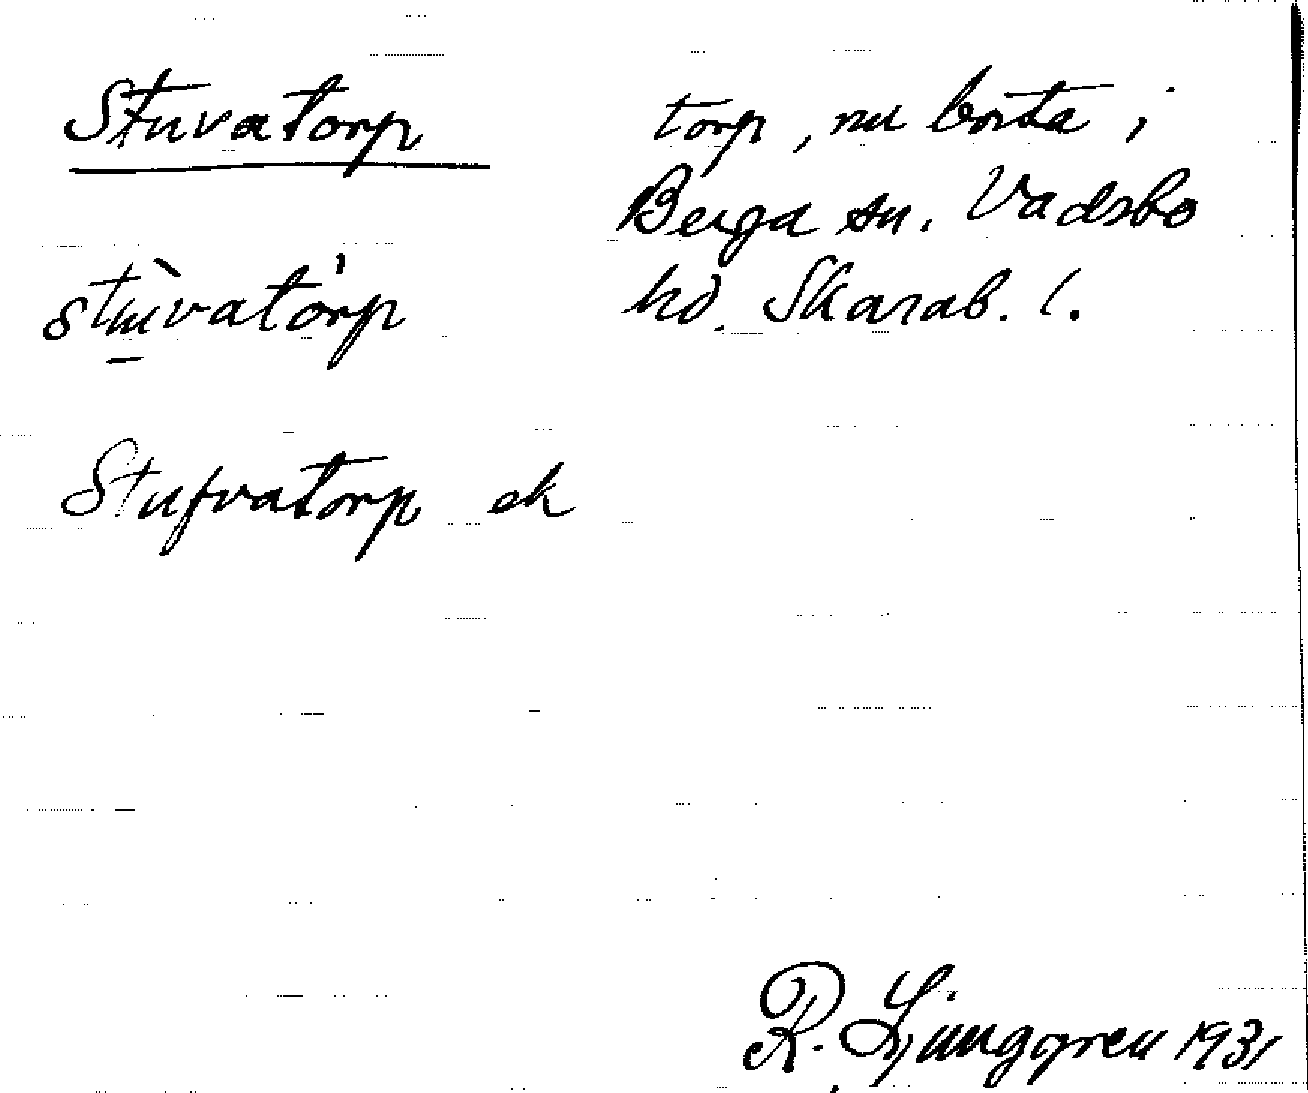 Stuvatorp
torp, nu borta i
Berga sn. Vadsbo
hd. Skarab. l.
stùvatórp
Stufvatorp ek
R. Ljunggren 1931